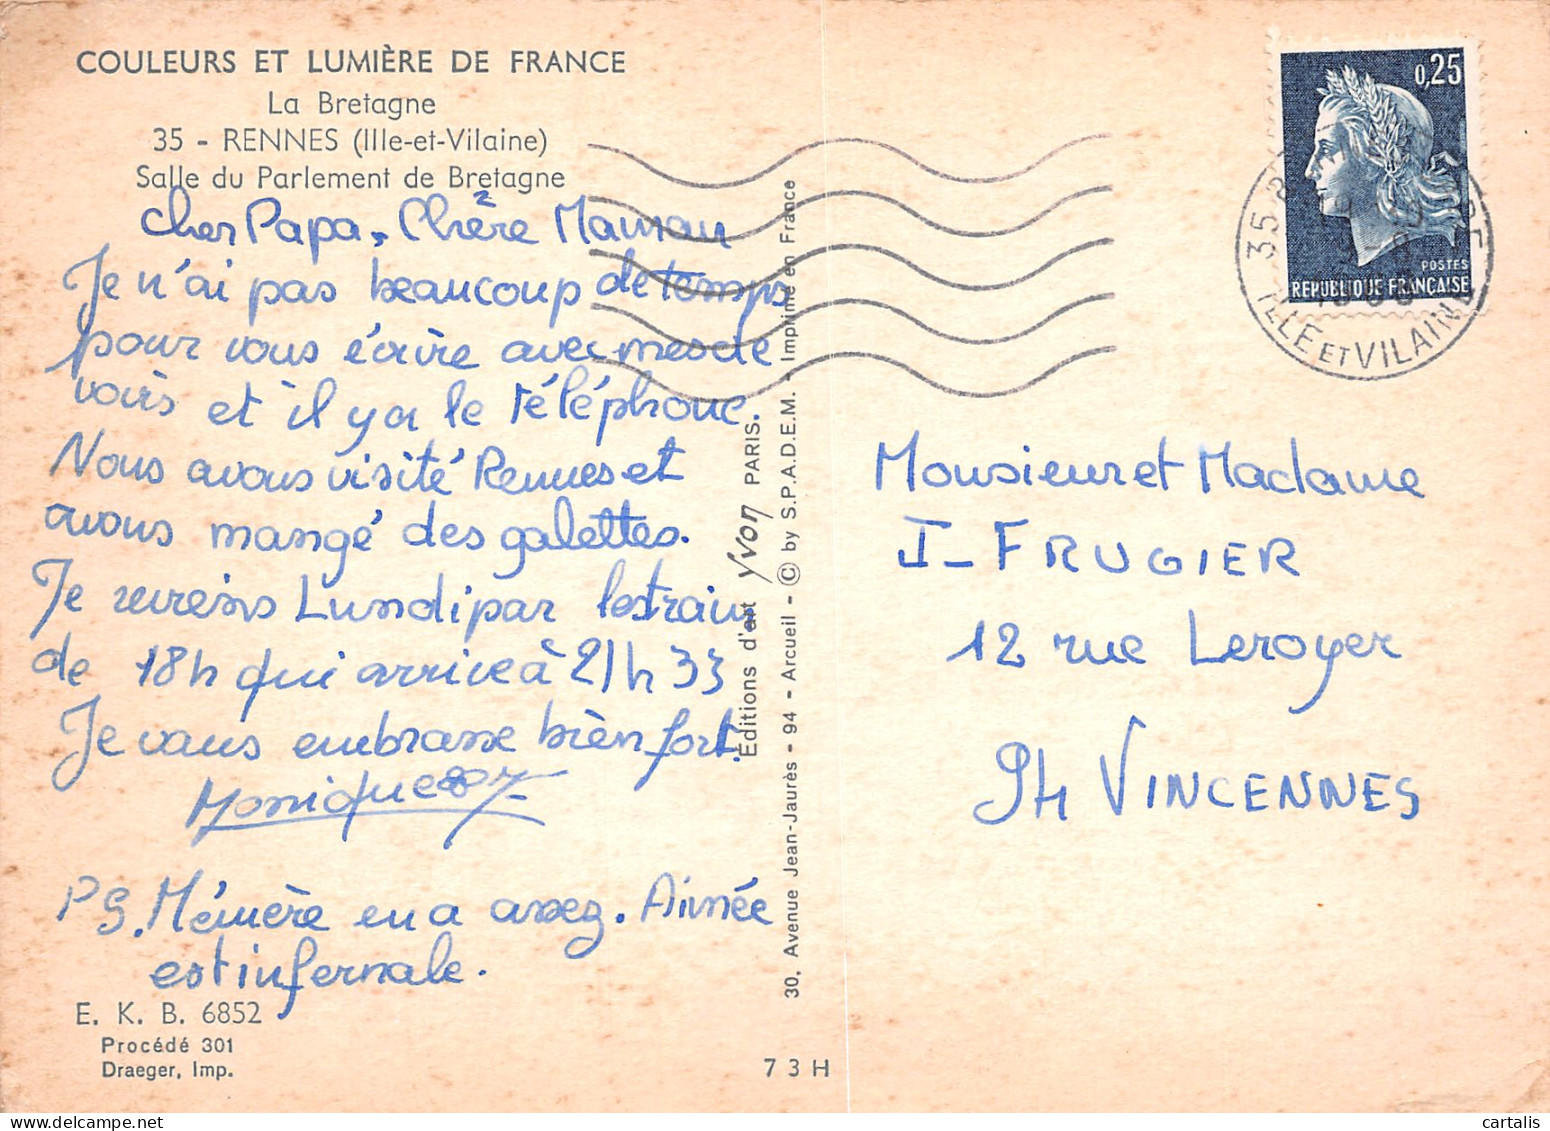 COULEURS ET LUMIÈRE DE FRANCE
La Bretagne
35 - RENNES (Ille-et-Vilaine)
Salle du Parlement de Bretagne
Cher Papa, Chère Maman
Je n'ai pas beaucoup de temps
pour vous écrire avec mes de
voirs et il y a le téléphone.
Nous avons visité Rennes et
avons mangé des galettes.
Je reviens Lundi par le train
de 18h qui arrive à 21h33
Je vous embrasse bien fort.
Monique
PS. Mémère en a assez. Aimée
est infernale.
E. K. B. 6852
Procédé 301
Draeger, Imp.
73H
Éditions d'art Yvon PARIS.
30, Avenue Jean-Jaurès - 94 - Arcueil - © by S.P.A.D.E.M. - Imprimé en France
0,25
POSTES
REPUBLIQUE FRANÇAISE
35
ILLE ET VILAINE
Monsieur et Madame
J-FRUGIER
12 rue Leroyer
94 VINCENNES
cartalis